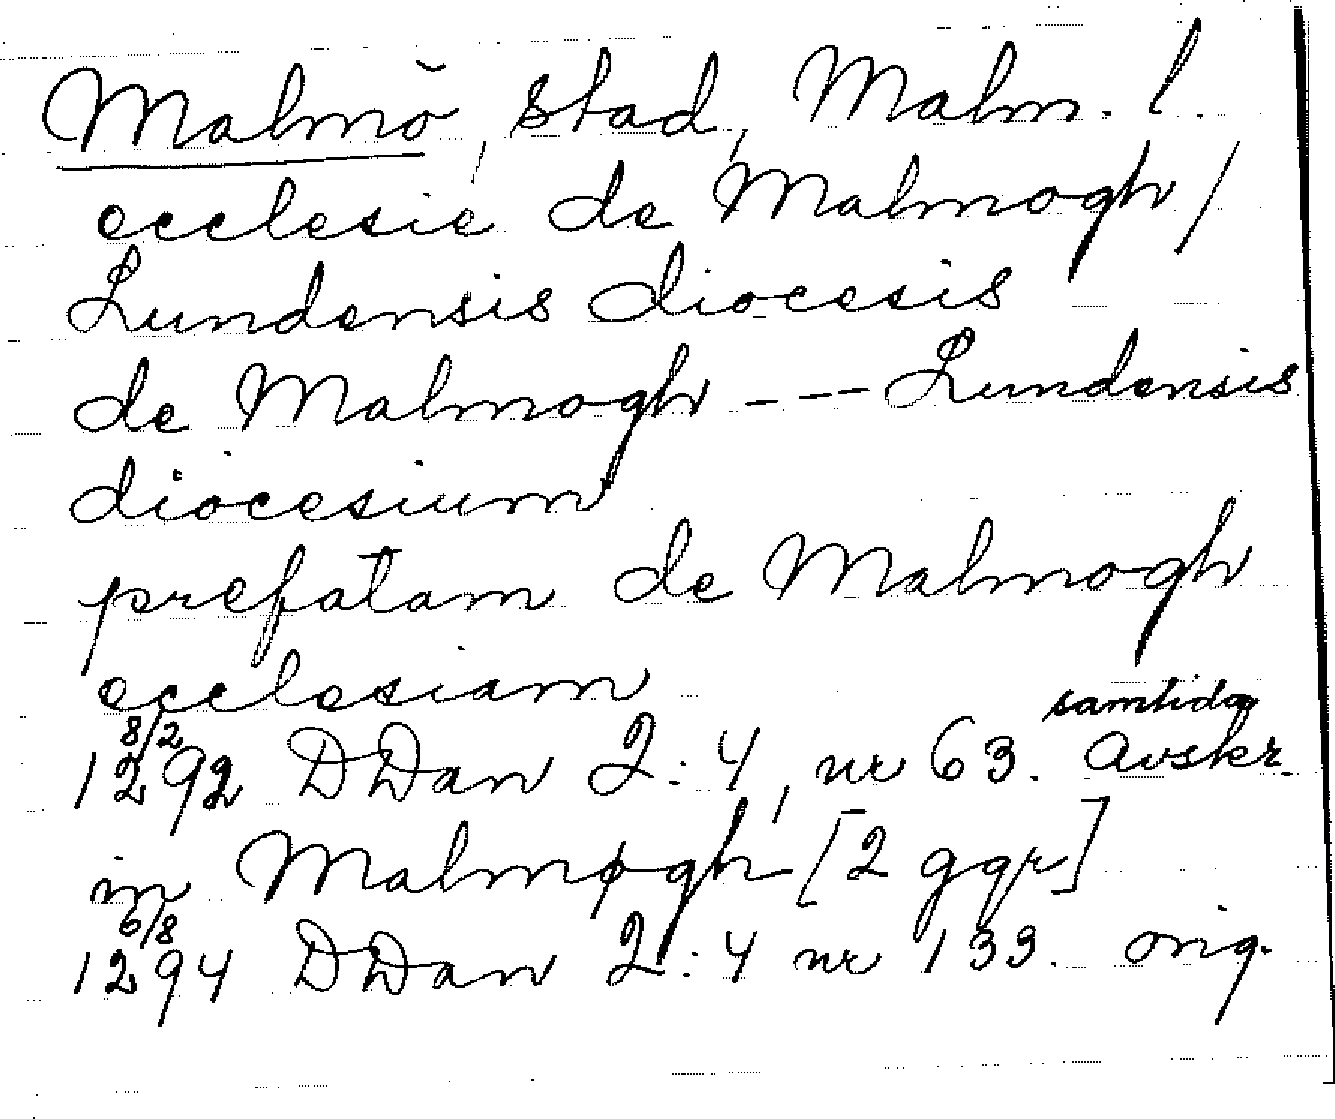 Malmö, stad, Malm. l.
ecclesie de Malmogh /
Lundensis diocesis
de Malmogh --- Lundensis
diocesium
prefatam de Malmogh
ecclesiam
8/2 samtida
1292 DDan 2:4, nr 63. Avskr.
in Malmøgh [2 ggr]
6/8
1294 DDan 2:4 nr 133. orig.